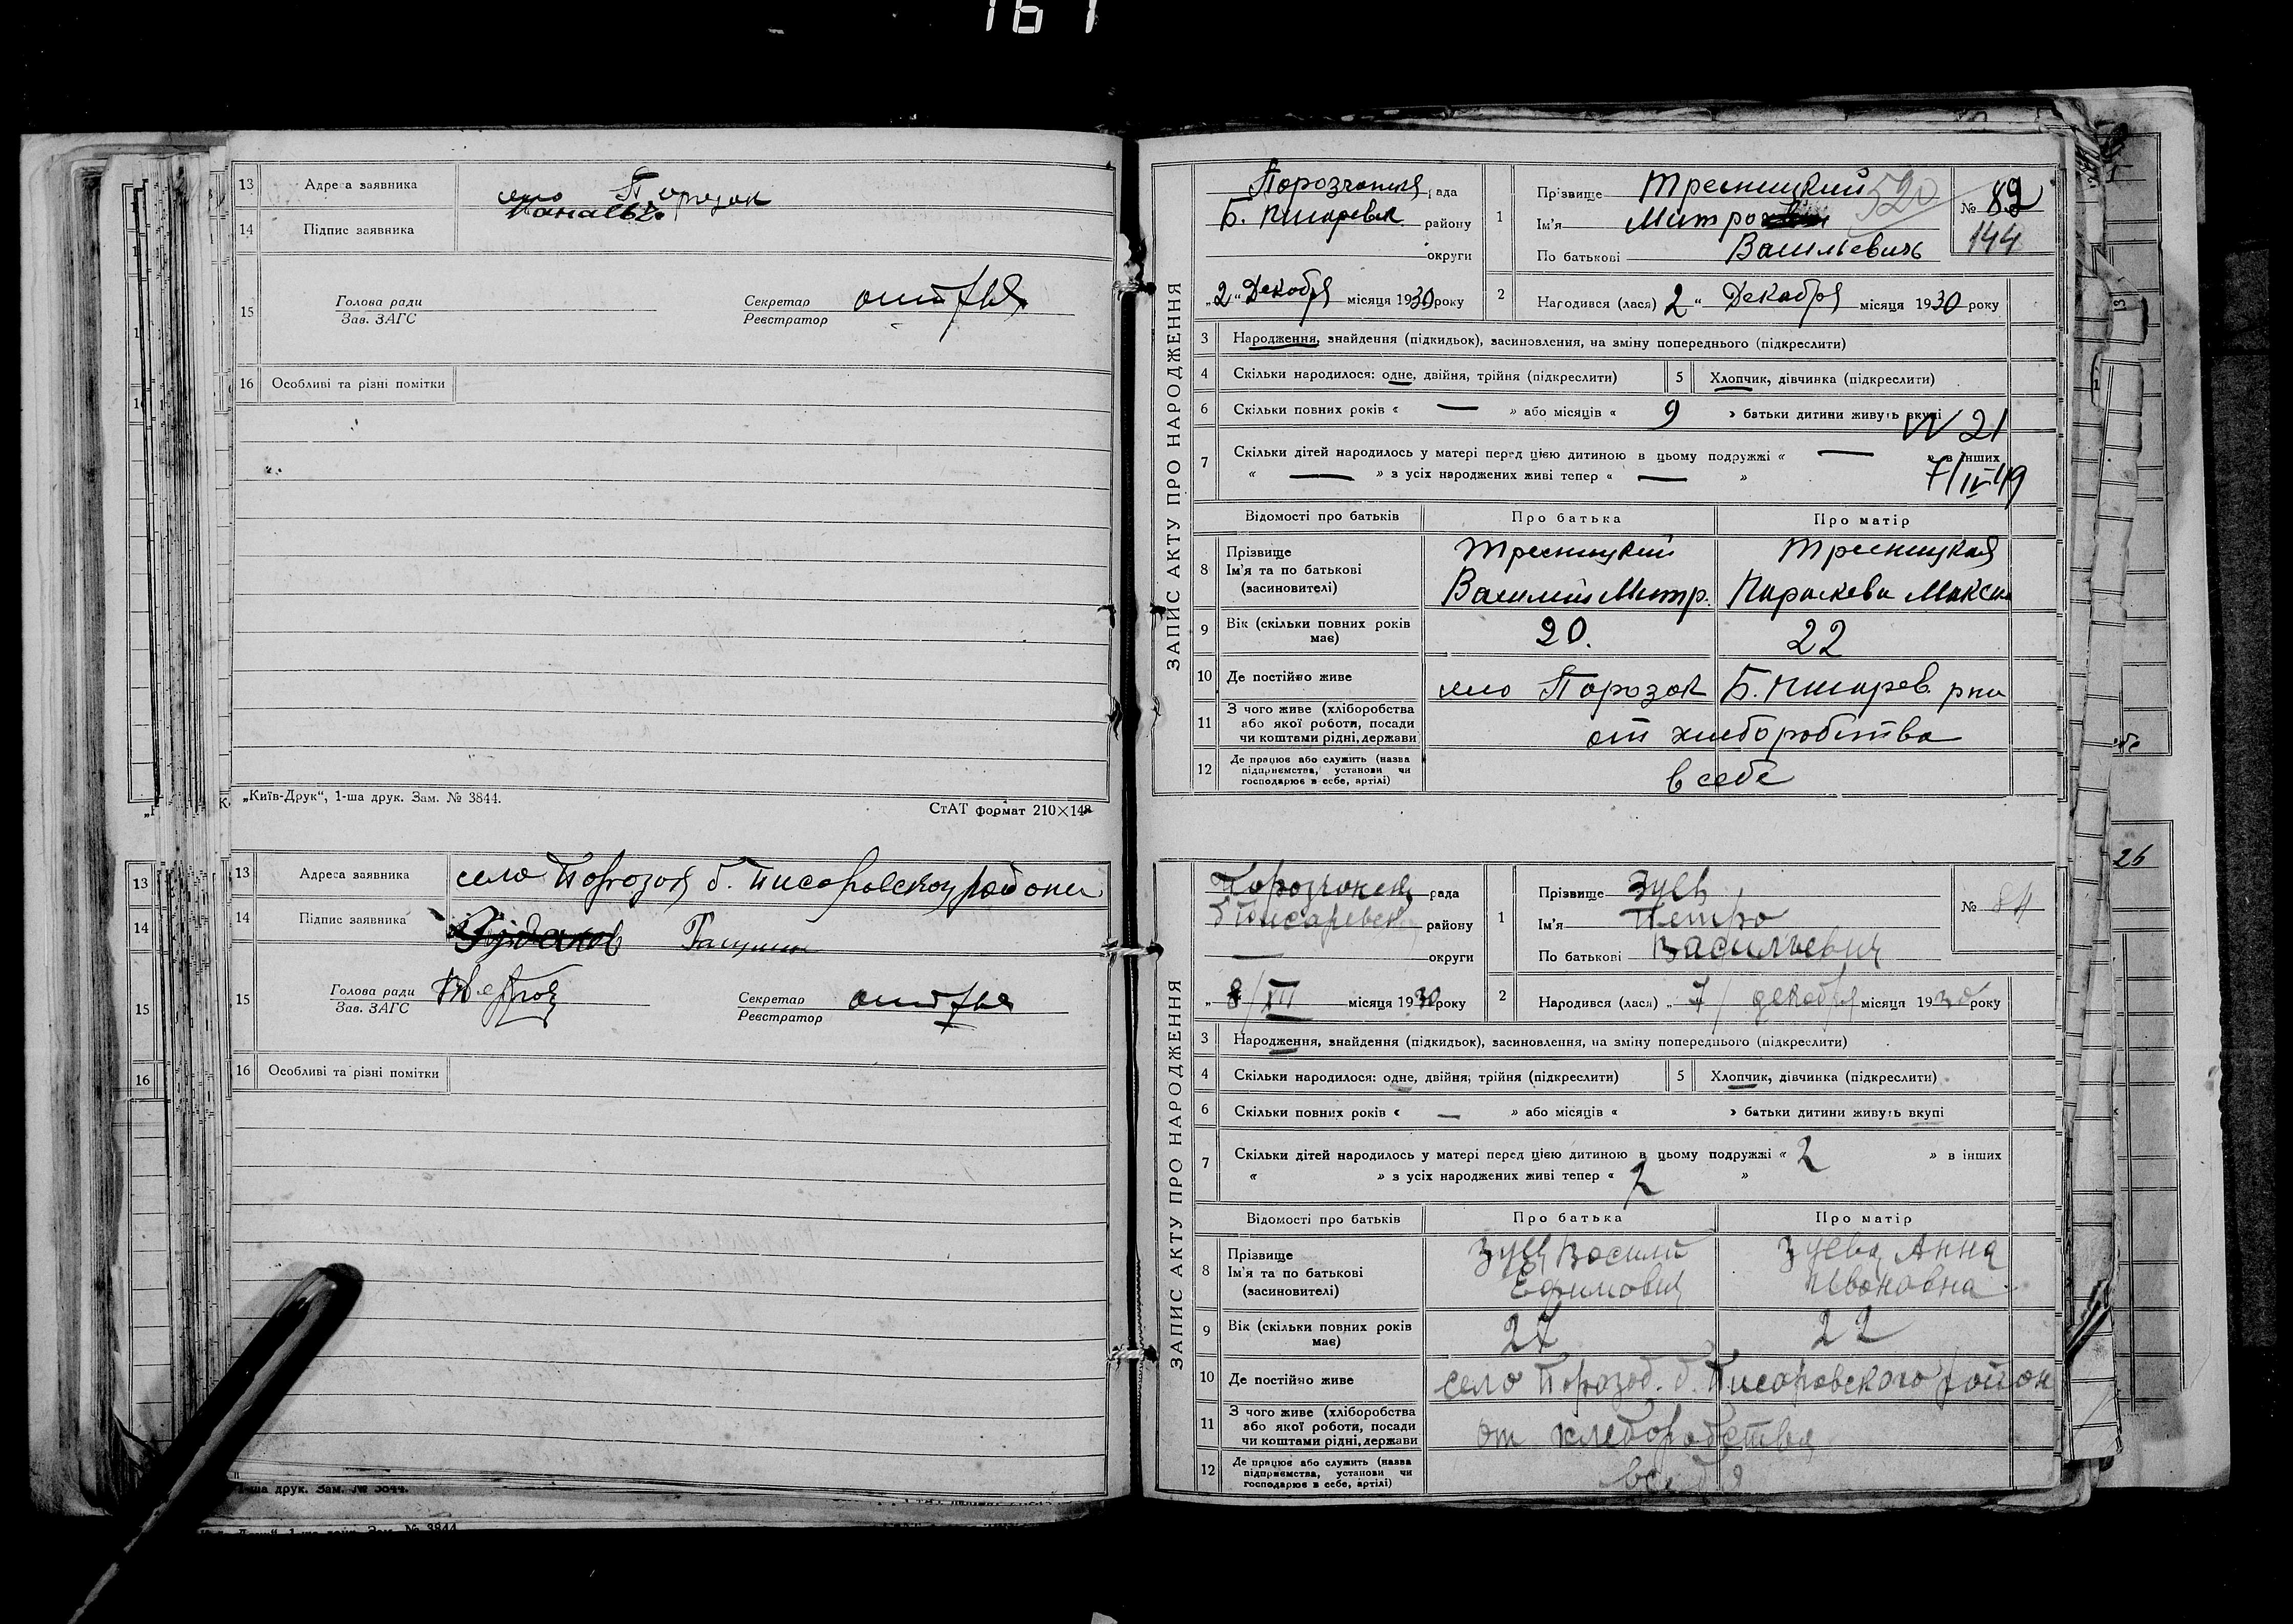 161
13 Адреса заявника село Порозок
14 Підпис заявника
15 Голова ради Зав. ЗАГС Секретар Реєстратор
16 Особливі та різні помітки
„Київ-Друк“, 1-ша друк. Зам. № 3844.
СтАТ формат 210×148
13 Адреса заявника село Порозок б. Писаровского района
14 Підпис заявника
15 Голова ради Зав. ЗАГС Секретар Реєстратор
16 Особливі та різні помітки
1-ша друк. Зам. № 3844.
ЗАПИС АКТУ ПРО НАРОДЖЕННЯ
рада
Б. Писаревск. району
округи
„2“ Декабря місяця 1930 року
1 Прізвище Тресницкий 520
Ім'я Митро
По батькові Васильевичь
№ 82
144
2 Народився (лася) 2 “ Декабря місяця 1930 року
3 Народження, знайдення (підкидьок), засиновлення, на зміну попереднього (підкреслити)
4 Скільки народилося: одне, двійня, трійня (підкреслити) 5 Хлопчик, дівчинка (підкреслити)
6 Скільки повних років « — » або місяців « 9 » батьки дитини живуть вкупі
21
7 Скільки дітей народилось у матері перед цією дитиною в цьому подружжі « — » в інших
« — » з усіх народжених живі тепер « — »
7/IV 49
Відомості про батьків Про батька Про матір
8 Прізвище Ім'я та по батькові (засиновителі)
Тресницкий Тресницкая
Василий Митр. Параскева Макси
9 Вік (скільки повних років має) 20. 22
10 Де постійно живе село Порозок Б. Писарев. рна
11 З чого живе (хліборобства або якої роботи, посади чи коштами рідні, держави от хлеборобства
12 Де працює або служить (назва підприємства, установи чи господарює в себе, артілі) в себе
ЗАПИС АКТУ ПРО НАРОДЖЕННЯ
рада
району
округи
„8/XII місяця 1930 року
1 Прізвище Зуев
Ім'я Петро
По батькові Васильевич
№ 84
2 Народився (лася) „7/ декабря місяця 1930 року
3 Народження, знайдення (підкидьок), засиновлення, на зміну попереднього (підкреслити)
4 Скільки народилося: одне, двійня, трійня (підкреслити) 5 Хлопчик, дівчинка (підкреслити)
6 Скільки повних років « — » або місяців « » батьки дитини живуть вкупі
7 Скільки дітей народилось у матері перед цією дитиною в цьому подружжі « 2 » в інших
« » з усіх народжених живі тепер « 2 »
Відомості про батьків Про батька Про матір
8 Прізвище Ім'я та по батькові (засиновителі)
Зуев Васили Зуева Анна
Ефимович Ивановна
9 Вік (скільки повних років має) 27 22
10 Де постійно живе село Порозок. б. Писаровского район
11 З чого живе (хліборобства або якої роботи, посади чи коштами рідні, держави от хлеборобства
12 Де працює або служить (назва підприємства, установи чи господарює в себе, артілі)
26